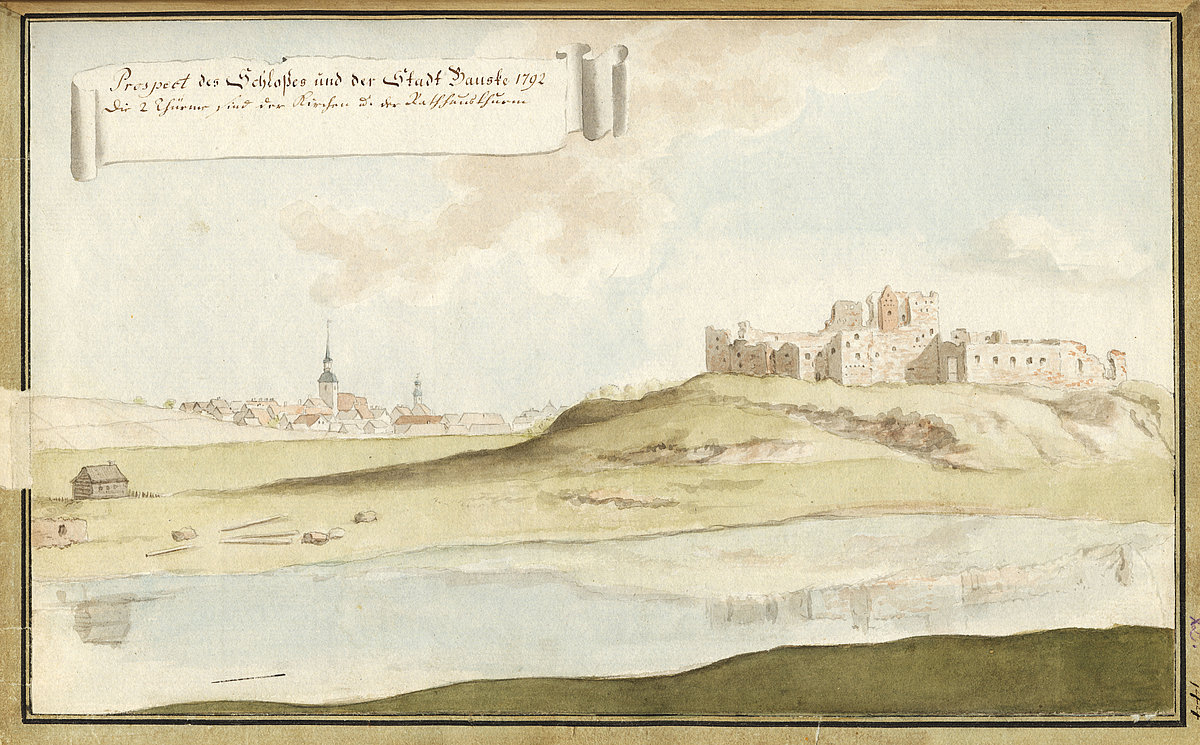 Prospect des Schloßes und der Stadt Bauske 1792
Die 2 Thürme sind der Kirchen u. der Rathhausthurm